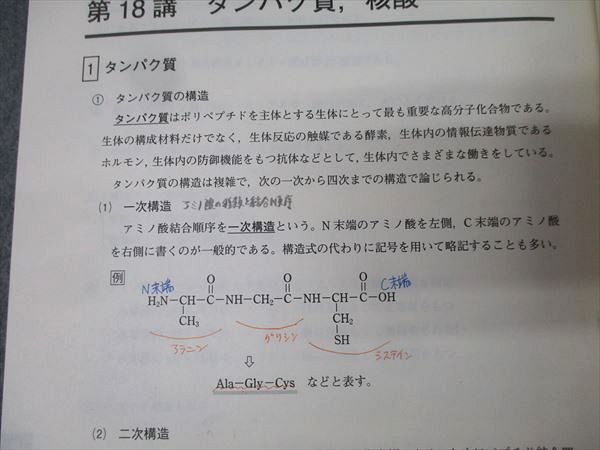 第18講 タンパク質，核酸
1 タンパク質
① タンパク質の構造
タンパク質はポリペプチドを主体とする生体にとって最も重要な高分子化合物である。
生体の構成材料だけでなく，生体反応の触媒である酵素，生体内の情報伝達物質である
ホルモン，生体内の防御機能をもつ抗体などとして，生体内でさまざまな働きをしている。
タンパク質の構造は複雑で，次の一次から四次までの構造で論じられる。
(1) 一次構造 アミノ酸の種類と結合順序
アミノ酸結合順序を一次構造という。N末端のアミノ酸を左側，C末端のアミノ酸
を右側に書くのが一般的である。構造式の代わりに記号を用いて略記することも多い。
例
N末端 O O O C末端
H₂N－CH－C－NH－CH₂－C－NH－CH－C－OH
CH₃ CH₂
SH
アラニン グリシン システイン
⇩
Ala－Gly－Cys などと表す。
(2) 二次構造